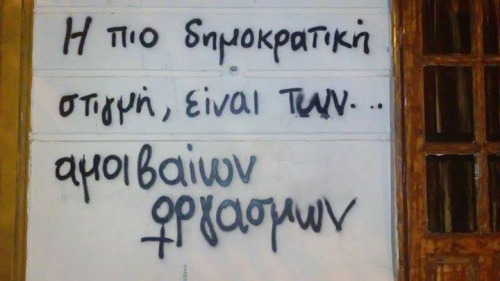 Η πιο δημοκρατική
στιγμή, είναι των...
αμοιβαίων
οργασμών